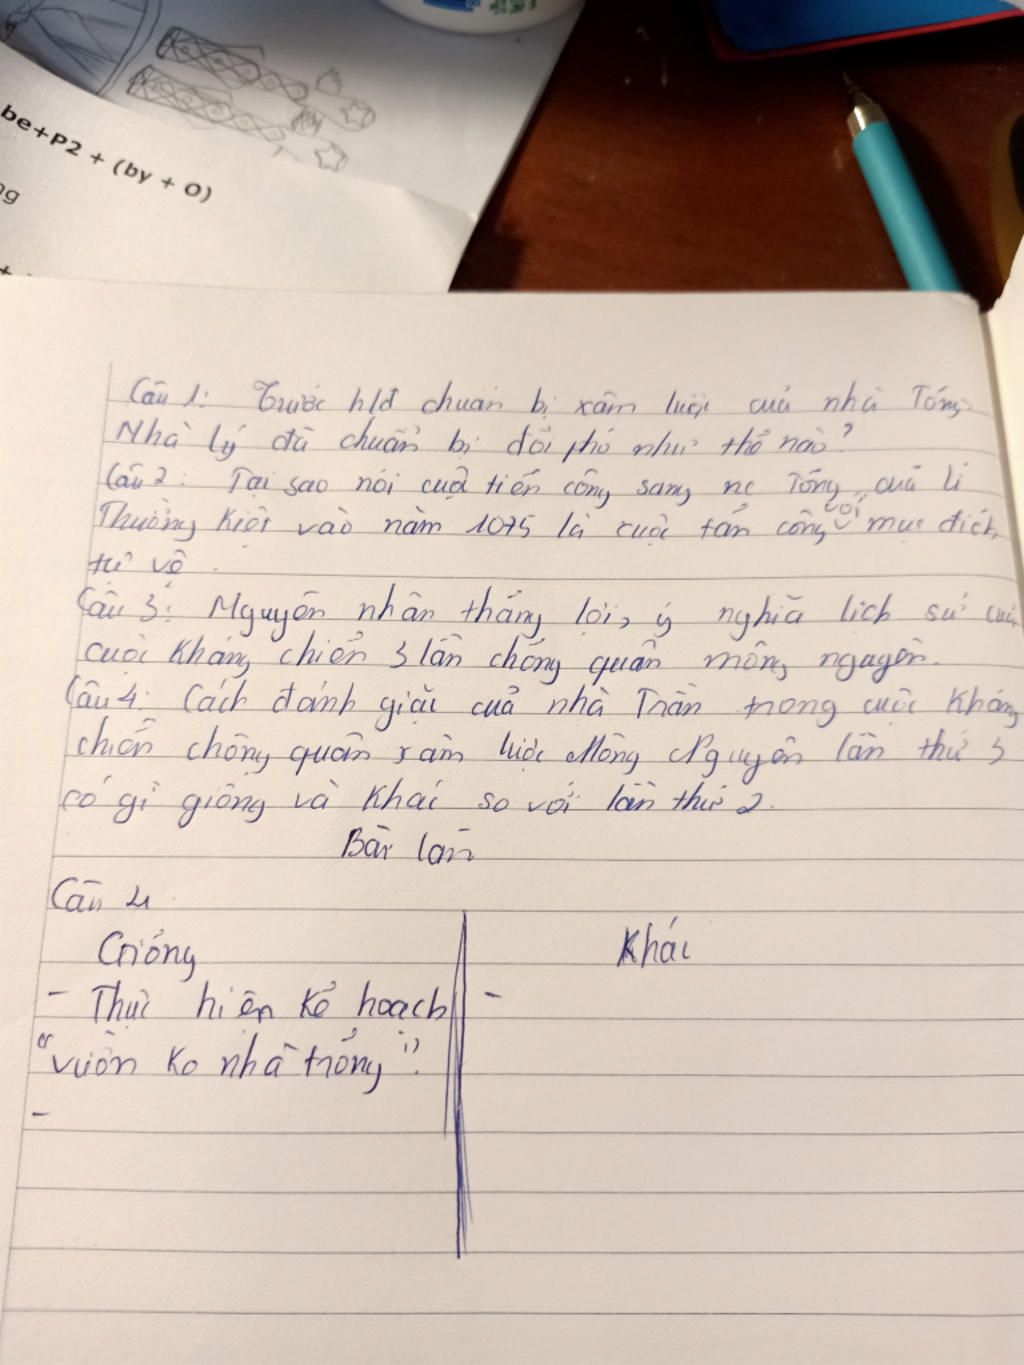 be+P2 + (by + O)
ng
Câu 1: Trước hđ chuẩn bị xâm lược của nhà Tống.
Nhà Lý đã chuẩn bị đối phó như thế nào?
Câu 2: Tại sao nói cuộc tiến công sang nc Tống của Lí
Thường Kiệt vào năm 1075 là cuộc tấn công với mục đích
tự vệ.
Câu 3: Nguyên nhân thắng lợi, ý nghĩa lịch sử của
cuộc kháng chiến 3 lần chống quân mông nguyên.
Câu 4: Cách đánh giặc của nhà Trần trong cuộc kháng
chiến chống quân xâm lược Mông Nguyên lần thứ 3
có gì giống và khác so với lần thứ 2.
Bài làm
Câu 4
Giống
Khác
- Thực hiện kế hoạch
-
"vườn ko nhà trống".
-